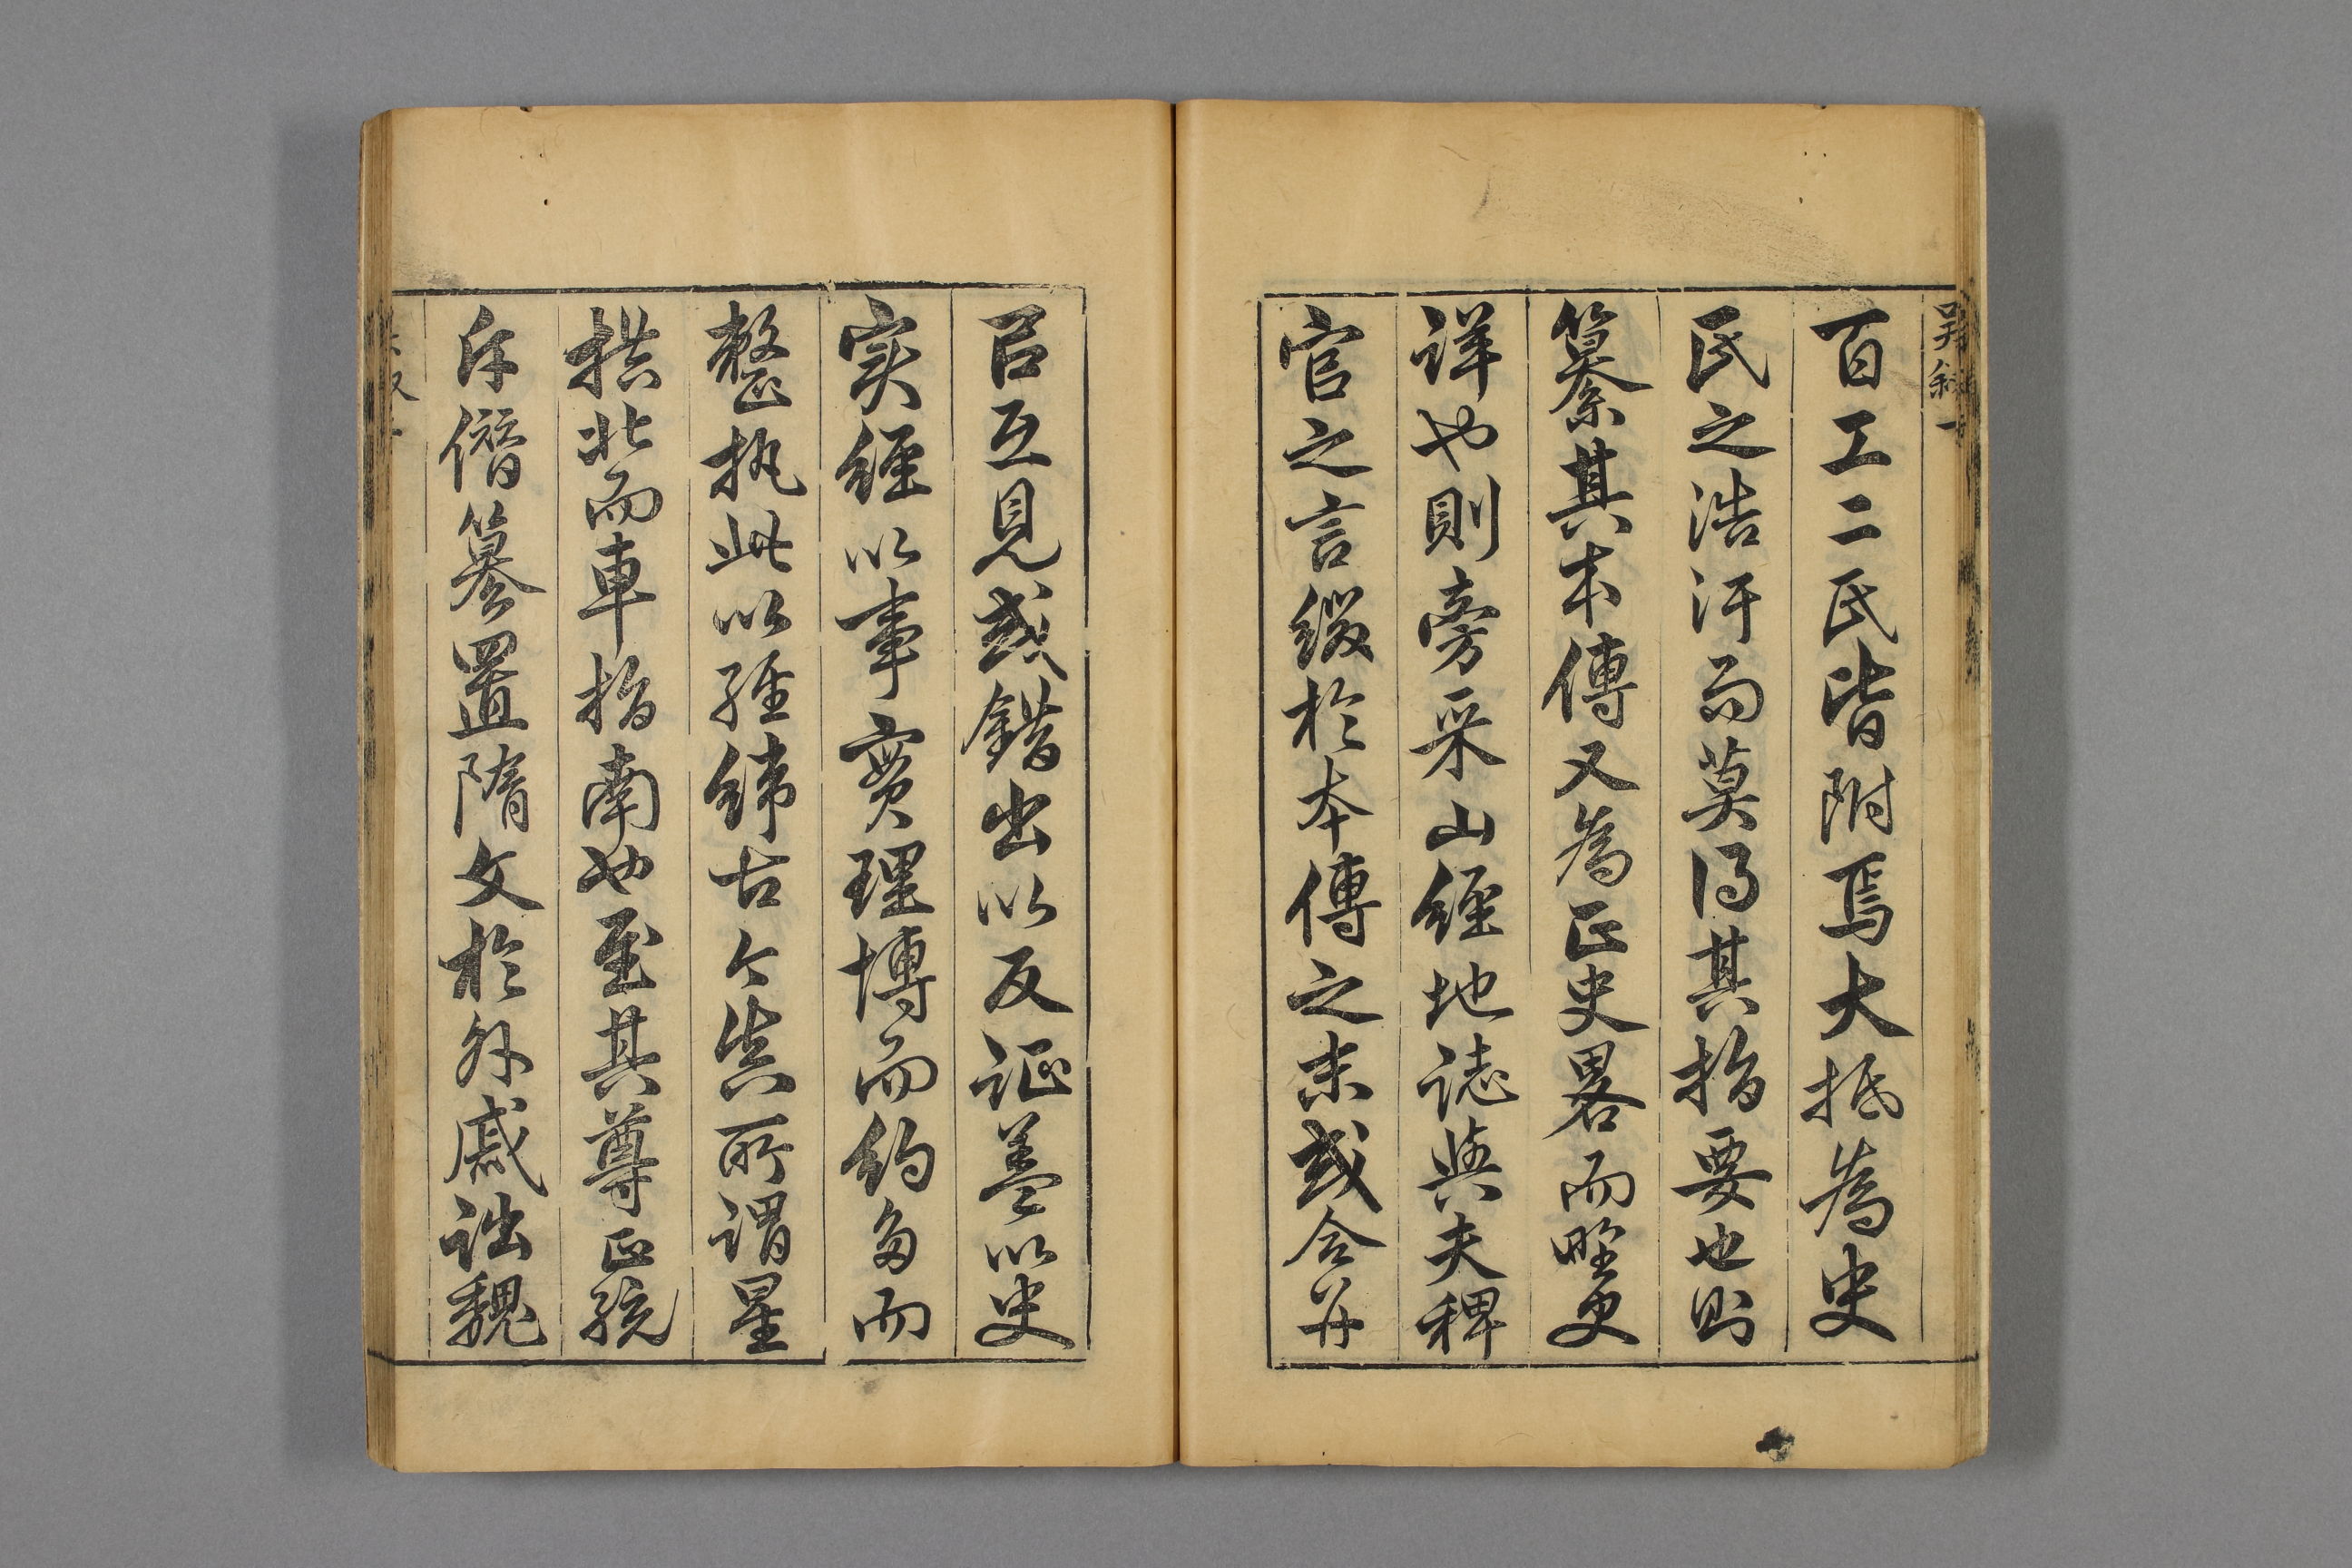 吳敘
百工二氏皆附焉大抵為史
氏之浩汗而莫得其指要也則
纂其本傳又為正史畧而野史
詳也則旁采山經地誌與夫稗
官之言綴於本傳之末或合并
㠯互見或錯出以反証蓋以史
实經以事實理博而約多而
整執此以經緯古今眞所謂星
拱北而車指南也至其尊正統
斥僭篡置隋文於外戚詘魏